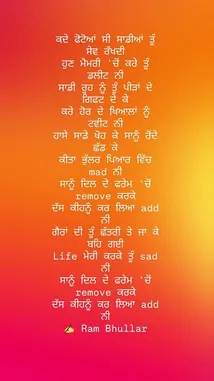 ਕਦੇ ਫੋਟੋਆਂ ਸੀ ਸਾਡੀਆਂ ਤੂੰ
ਸੇਵ ਰੱਖਦੀ
ਹੁਣ ਮੈਮਰੀ 'ਚੋਂ ਕਰੇ ਤੂੰ
ਡਲੀਟ ਨੀ
ਸਾਡੀ ਰੂਹ ਨੂੰ ਤੂੰ ਪੀੜਾਂ ਦੇ
ਗਿਫਟ ਦੇ ਕੇ
ਕਰੇ ਹੋਰ ਦੇ ਖਿਆਲਾਂ ਨੂੰ
ਟਵੀਟ ਨੀ
ਹਾਸੇ ਸਾਡੇ ਖੋਹ ਕੇ ਸਾਨੂੰ ਰੋਂਦੇ
ਛੱਡ ਕੇ
ਕੀਤਾ ਭੁੱਲਰ ਪਿਆਰ ਵਿੱਚ
mad ਨੀ
ਸਾਨੂੰ ਦਿਲ ਦੇ ਫਰੇਮ 'ਚੋਂ
remove ਕਰਕੇ
ਦੱਸ ਕੀਹਨੂੰ ਕਰ ਲਿਆ add
ਨੀ
ਗੈਰਾਂ ਦੀ ਤੂੰ ਛੱਤਰੀ ਤੇ ਜਾ ਕੇ
ਬਹਿ ਗਈ
Life ਮੇਰੀ ਕਰਕੇ ਤੂੰ sad
ਨੀ
ਸਾਨੂੰ ਦਿਲ ਦੇ ਫਰੇਮ 'ਚੋਂ
remove ਕਰਕੇ
ਦੱਸ ਕੀਹਨੂੰ ਕਰ ਲਿਆ add
ਨੀ
✍ Ram Bhullar